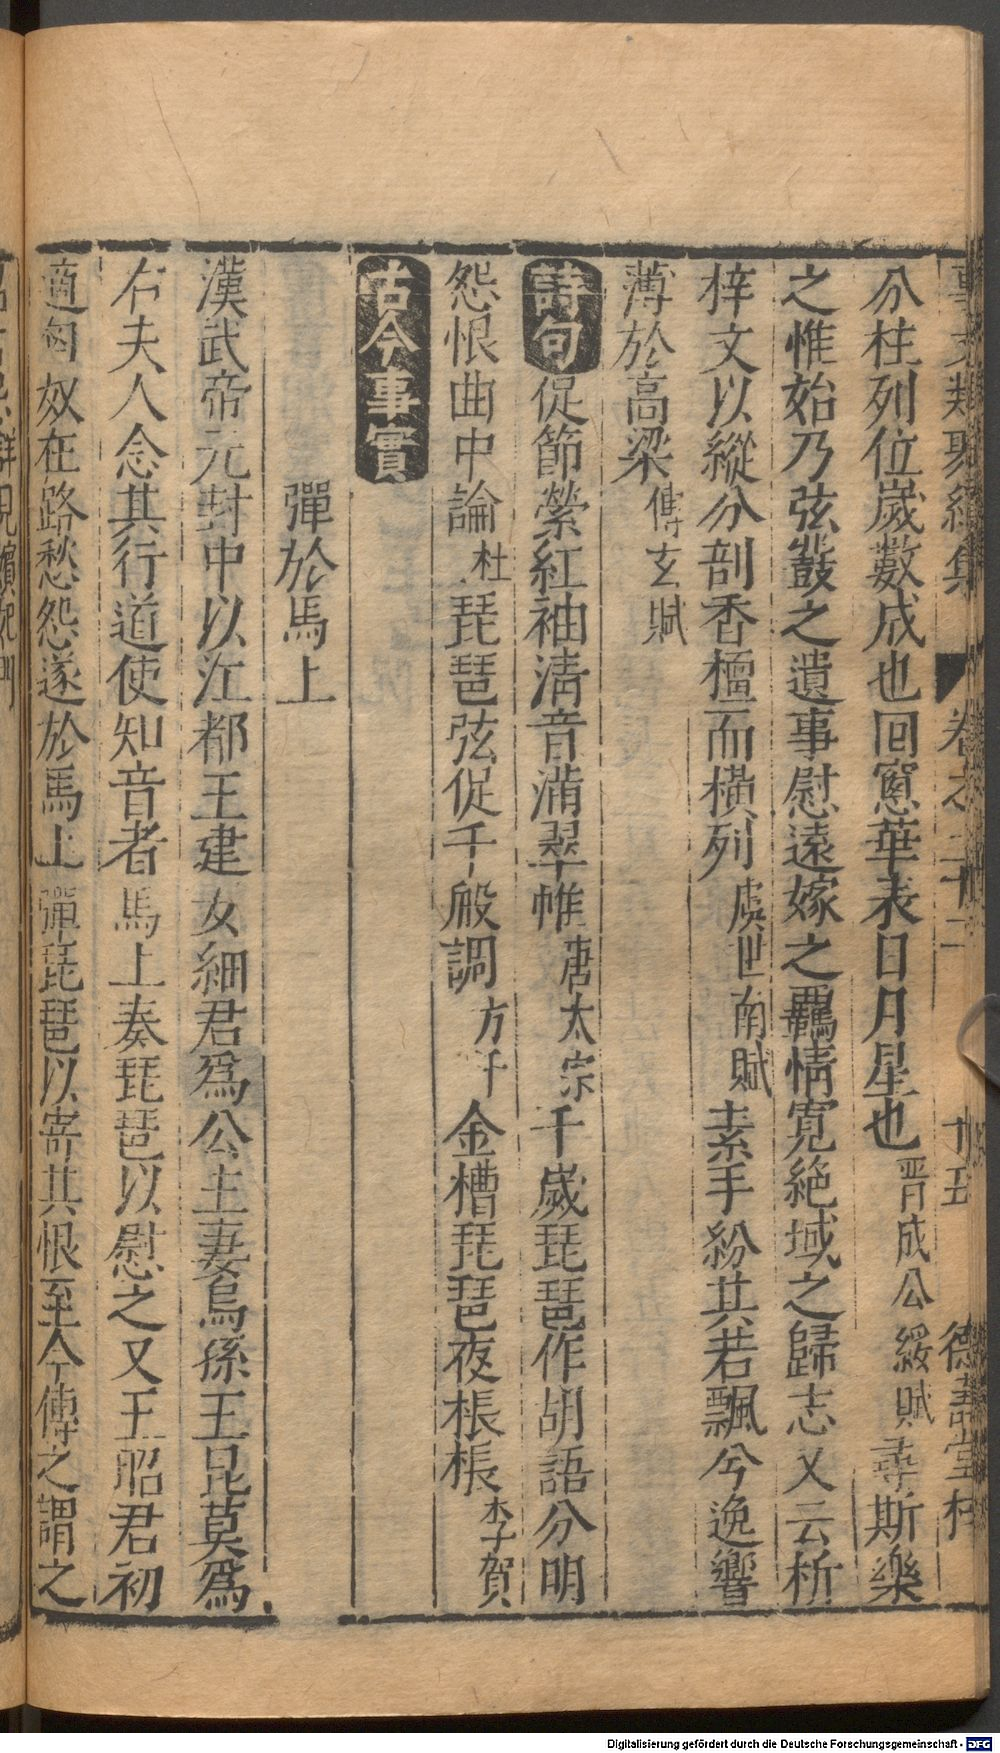 事文類聚續集 卷之二十二 十五 德壽堂梓
分柱列位歲數成也回窻華表日月星也晋成公綏賦尋斯樂
之惟始乃弦鼗之遺事慰遠嫁之羈情寛絶域之歸志又云析
梓文以縱分剖香檀而横列虞世南賦素手紛其若飄兮逸響
薄於高梁傅玄賦
詩句促節縈紅袖淸音滿翠帷唐太宗千歲琵琶作胡語分明
怨恨曲中論杜琵琶弦促千般調方干金槽琵琶夜棖棖李賀
古今事實
彈於馬上
漢武帝元封中以江都王建女細君爲公主妻烏孫王昆莫爲
右夫人念其行道使知音者馬上奏琵琶以慰之又王昭君初
適匈奴在路愁怨遂於馬上彈琵琶以寄其恨至今傳之謂之
Digitalisierung gefördert durch die Deutsche Forschungsgemeinschaft - DFG